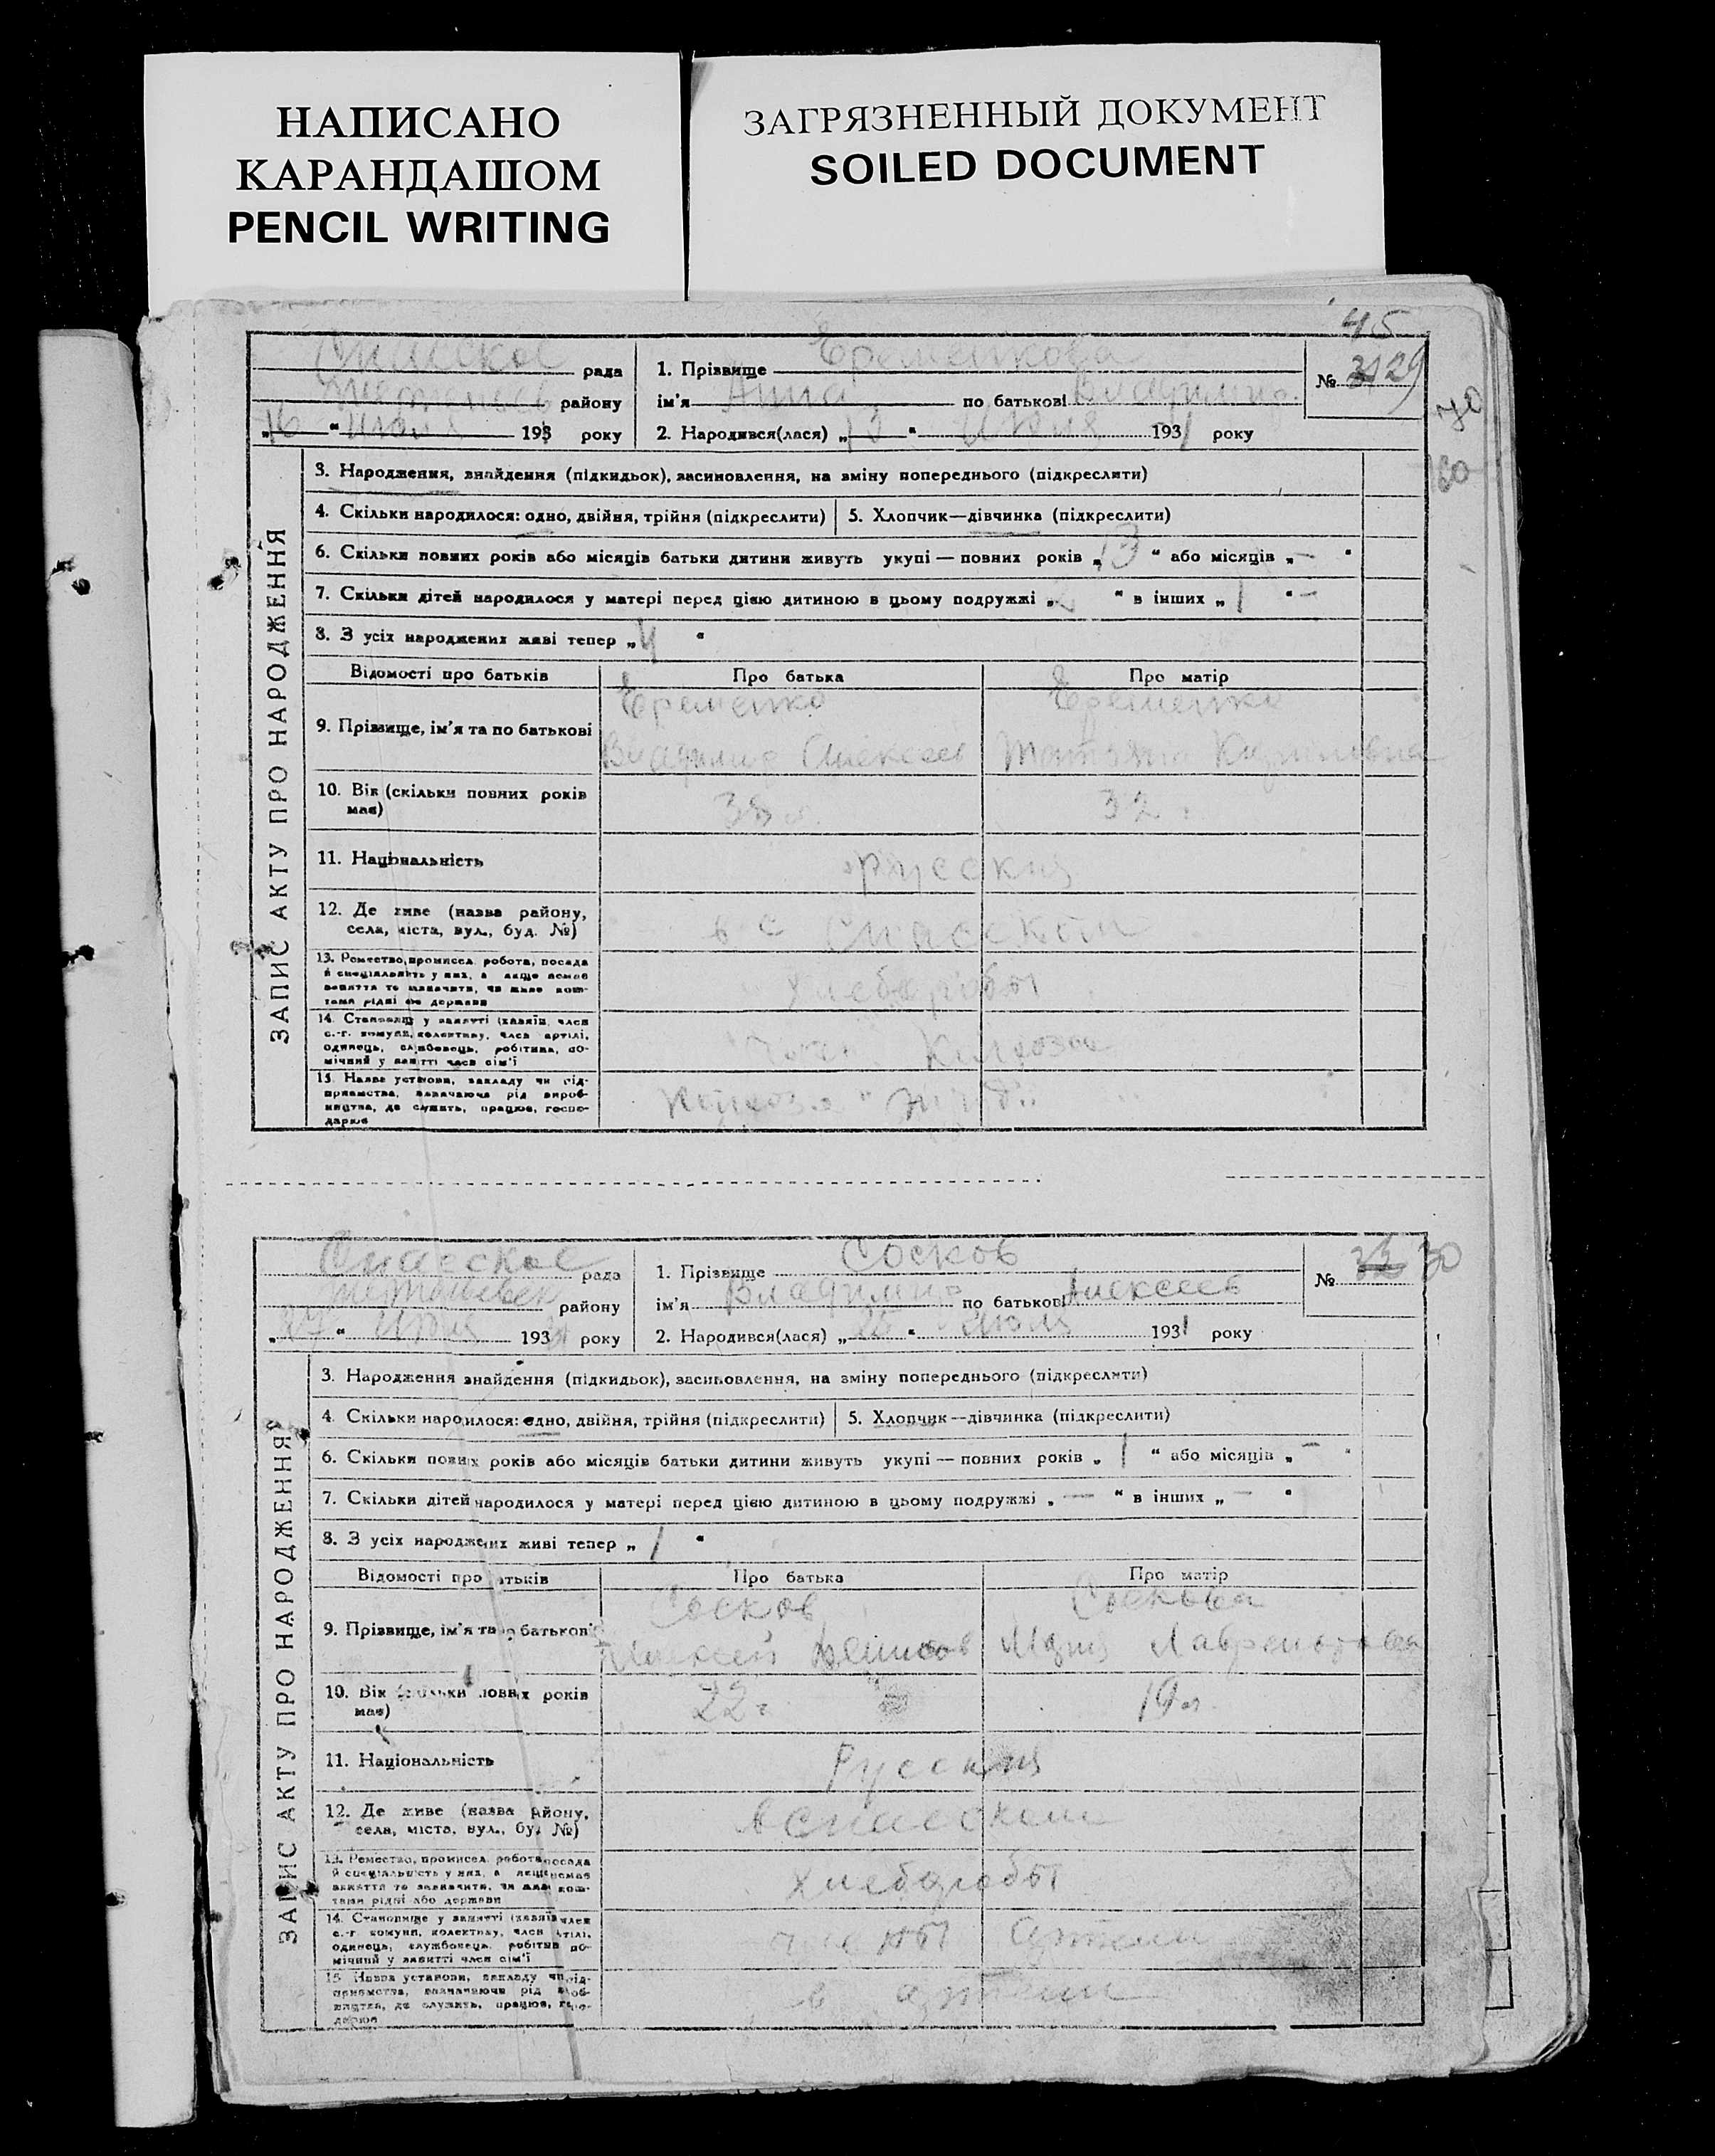 НАПИСАНО
КАРАНДАШОМ
PENCIL WRITING
ЗАГРЯЗНЕННЫЙ ДОКУМЕНТ
SOILED DOCUMENT
45
Спасское рада
району
„16 “ Июля 193 року
1. Прізвище Еременкова
ім'я Анна по батькові Владимир.
2. Народився(лася) „13 “ Июля 1931 року
№ 29
70
60
ЗАПИС АКТУ ПРО НАРОДЖЕННЯ
3. Народження, знайдення (підкидьок), засиновлення, на зміну попереднього (підкреслити)
4. Скільки народилося: одно, двійня, трійня (підкреслити) 5. Хлопчик—дівчинка (підкреслити)
6. Скільки повних років або місяців батьки дитини живуть укупі — повних років „13 “ або місяців „ — “
7. Скільки дітей народилося у матері перед цією дитиною в цьому подружжі „ “ в інших „ 1 “ —
8. З усіх народжених живі тепер „4 “
Відомості про батьків Про батька Про матір
9. Прізвище, ім'я та по батькові
Еременко Еременко
Владимир Алексеев Татьяна Кириловна
10. Вік (скільки повних років має) 38 г. 32 г.
11. Національність Русския
12. Де живе (назва району, села, міста, вул., буд. №) в с Спасском
13. Ремество, промисел, робота, посада
й спеціальність у них, а якщо немає
заняття то зазначити, чи живе кош-
тами рідні або держави
Хлеборобы
14. Становище у занятті (хазяїн, член
с.-г. комуни, колективу, член артілі,
одинець, службовець, робітник, по-
мічний у занятті член сім'ї
Колхоза
15. Назва установи, закладу чи під-
приємства, зазначаючи рід вироб-
ництва, де служить, працює, госпо-
дарює
Колхоза
Спасское рада
району
„27 “ Июля 193 року
1. Прізвище Сосков
ім'я Владимир по батькові Алексеев
2. Народився(лася) „25 “ Июля 1931 року
№ 30
ЗАПИС АКТУ ПРО НАРОДЖЕННЯ
3. Народження знайдення (підкидьок), засиновлення, на зміну попереднього (підкреслити)
4. Скільки народилося: одно, двійня, трійня (підкреслити) 5. Хлопчик—дівчинка (підкреслити)
6. Скільки повних років або місяців батьки дитини живуть укупі — повних років „ 1 “ або місяців „ — “
7. Скільки дітей народилося у матері перед цією дитиною в цьому подружжі „ — “ в інших „ — “
8. З усіх народжених живі тепер „ 1 “
Відомості про батьків Про батька Про матір
9. Прізвище, ім'я та по батькові
Сосков Соскова
Алексей Денисов Мария Лаврентьевна
10. Вік (скільки повних років має) 22 г. 19 г.
11. Національність Русския
12. Де живе (назва району, села, міста, вул., буд. №) в Спасском
13. Ремество, промисел, робота, посада
й спеціальність у них, а якщо немає
заняття то зазначити, чи живе кош-
тами рідні або держави
Хлеборобы
14. Становище у занятті (хазяїн член
с.-г. комуни, колективу, член артілі,
одинець, службовець, робітник по-
мічний у занятті член сім'ї
члены артели
15. Назва установи, закладу чи під-
приємства, зазначаючи рід вироб-
ництва, де служить, працює, госпо-
дарює
в артели